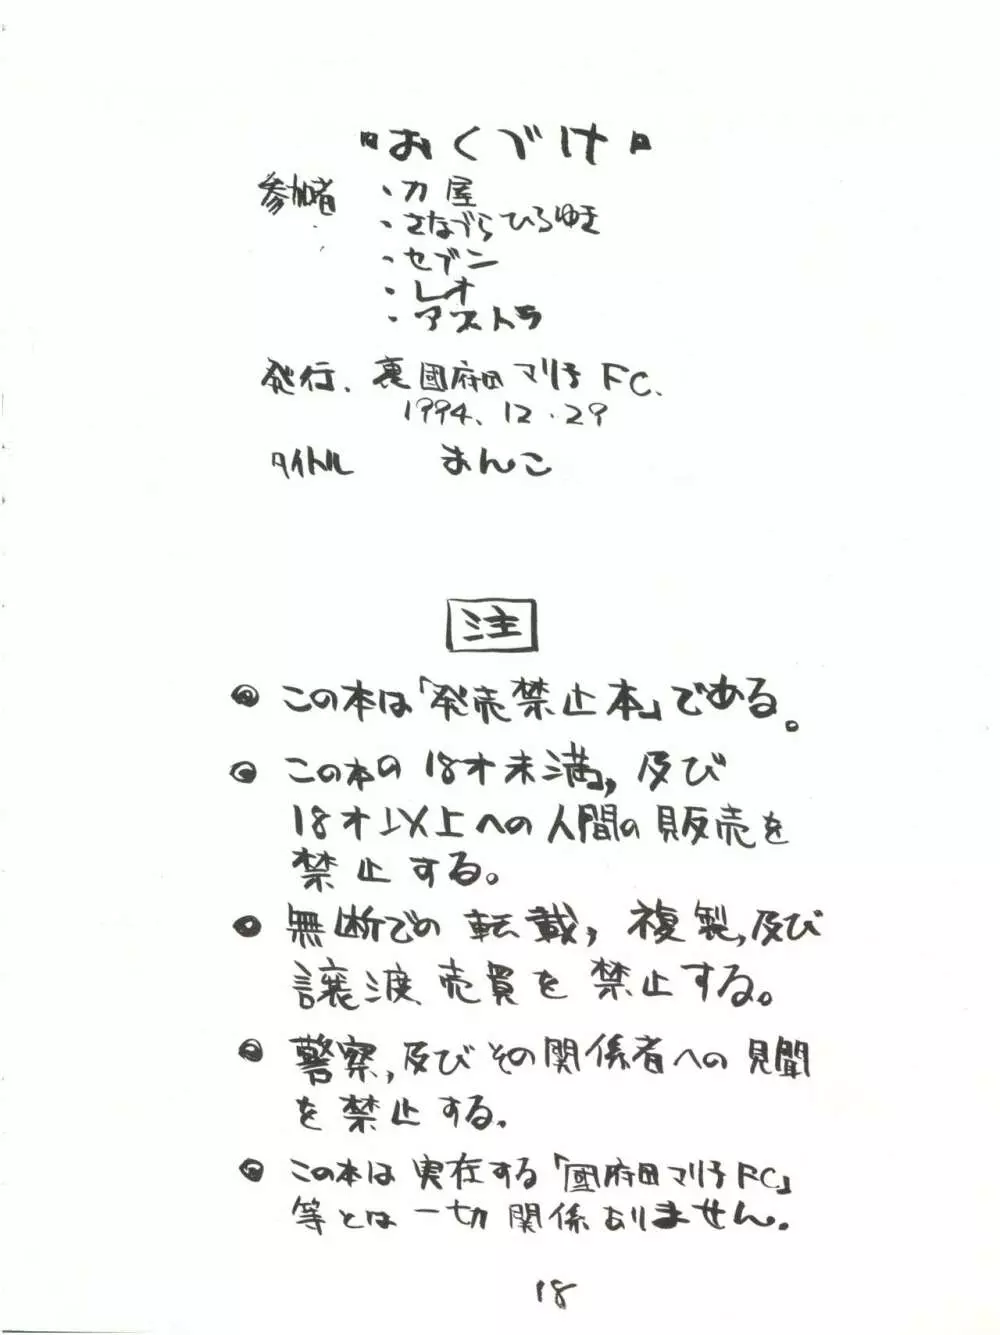 "おくづけ"
参加者 ・力屋
・さなづらひろゆき
・セブン
・レオ
・アストラ
発行、裏國府田マリ子FC、
1994.12.29
タイトル まんこ
注
◎この本は「発売禁止本」である。
◎この本の18才未満,及び
18才以上への人間の販売を
禁止する。
◎無断での転載,複製,及び
譲渡売買を禁止する。
◎警察,及びその関係者への見聞
を禁止する。
◎この本は実在する「國府田マリ子FC」
等とは一切関係ありません。
18